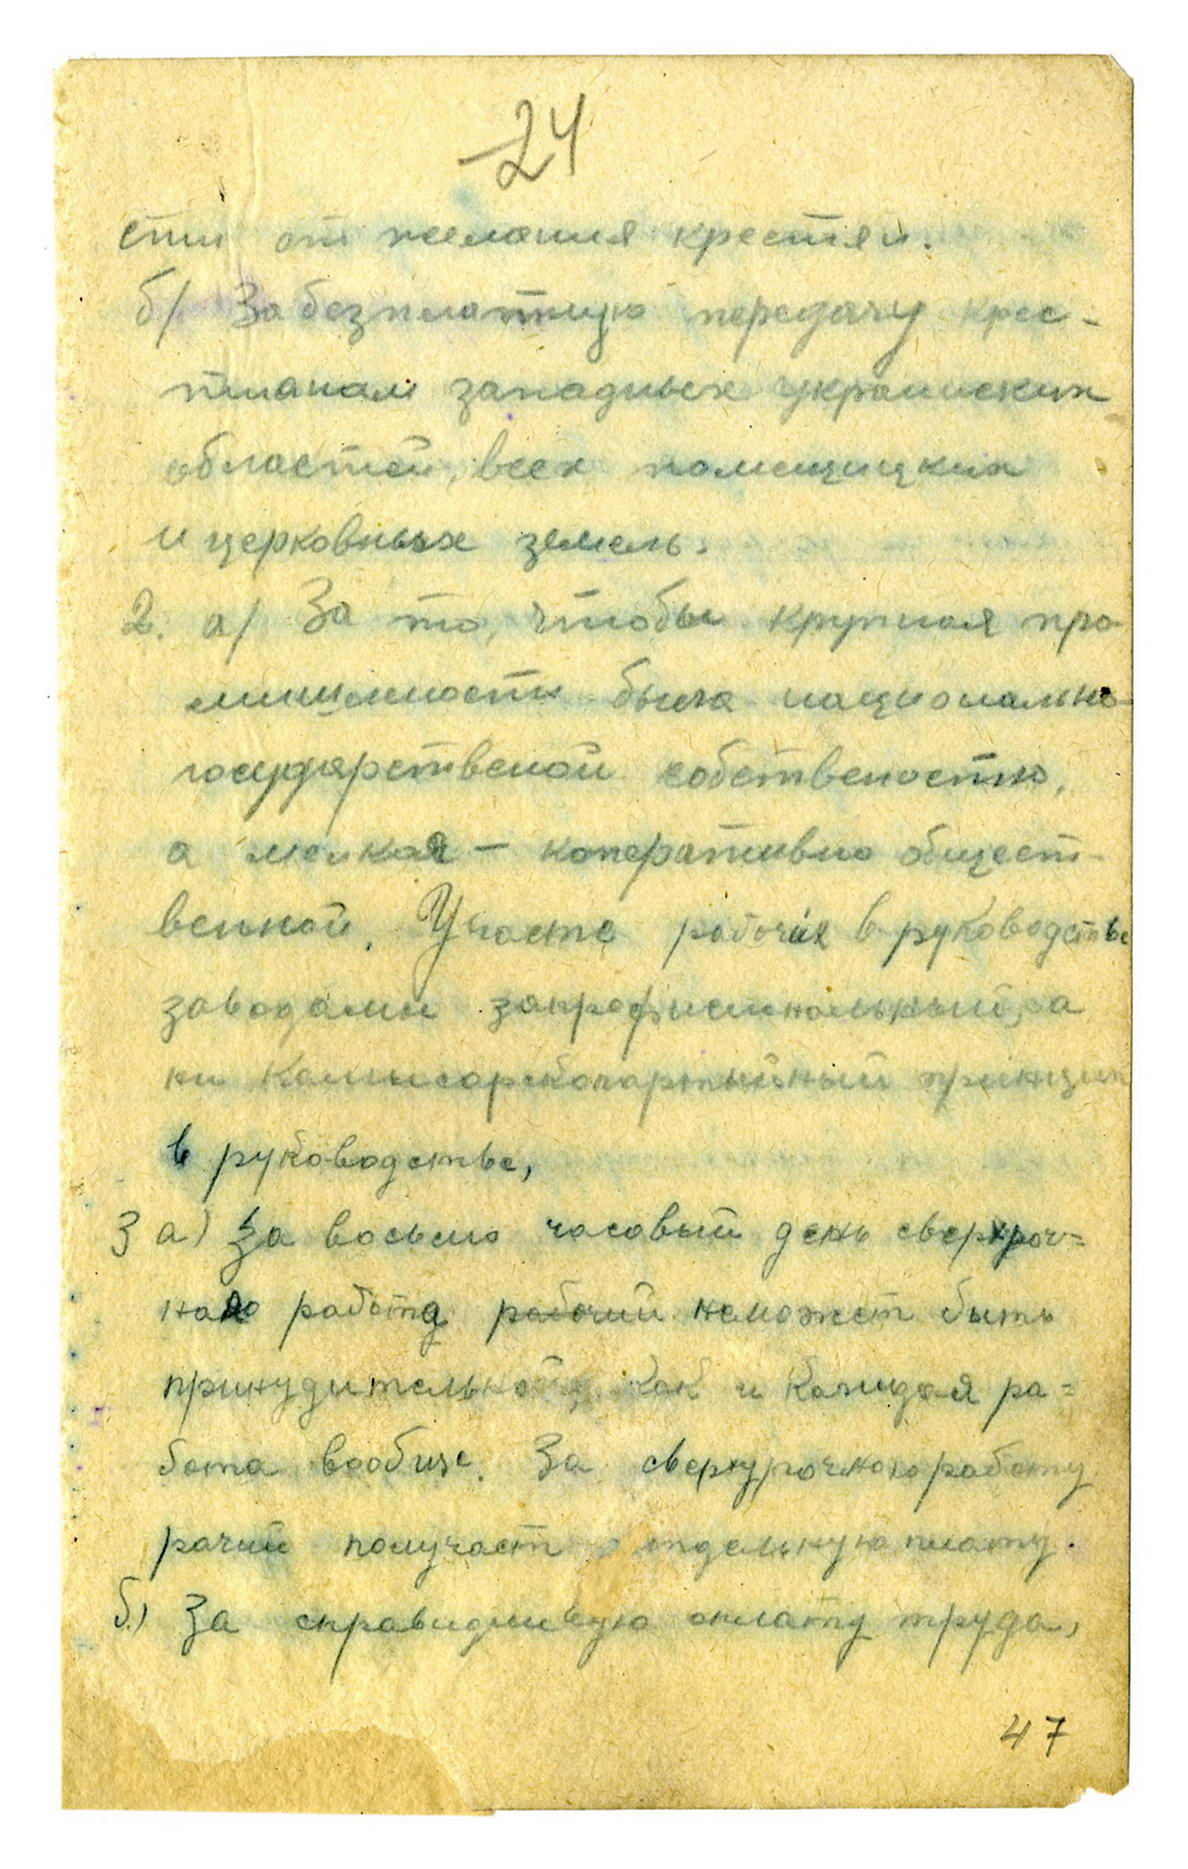 24
сти от желания крестян.
б/ За безплатную передачу крес-
тианам западных украинских
областей, всех помещицких
и церковных земель.
2. а/ За то, чтобы крупная про-
мишленость была национально-
государственой собственостю,
а мелкая — коперативно общест-
венной. Участе рабочих в руководстве
заводами за а
ни принцип
в руководстве,
3 а) За восьмо часовый день сверхроч-
ная работа рабочий неможет быть
принудительной, как и каждая ра=
бота вообще. За сверхурочною работу
рачий получает отдельную плату.
б.) За справидливую оплату труда,
47